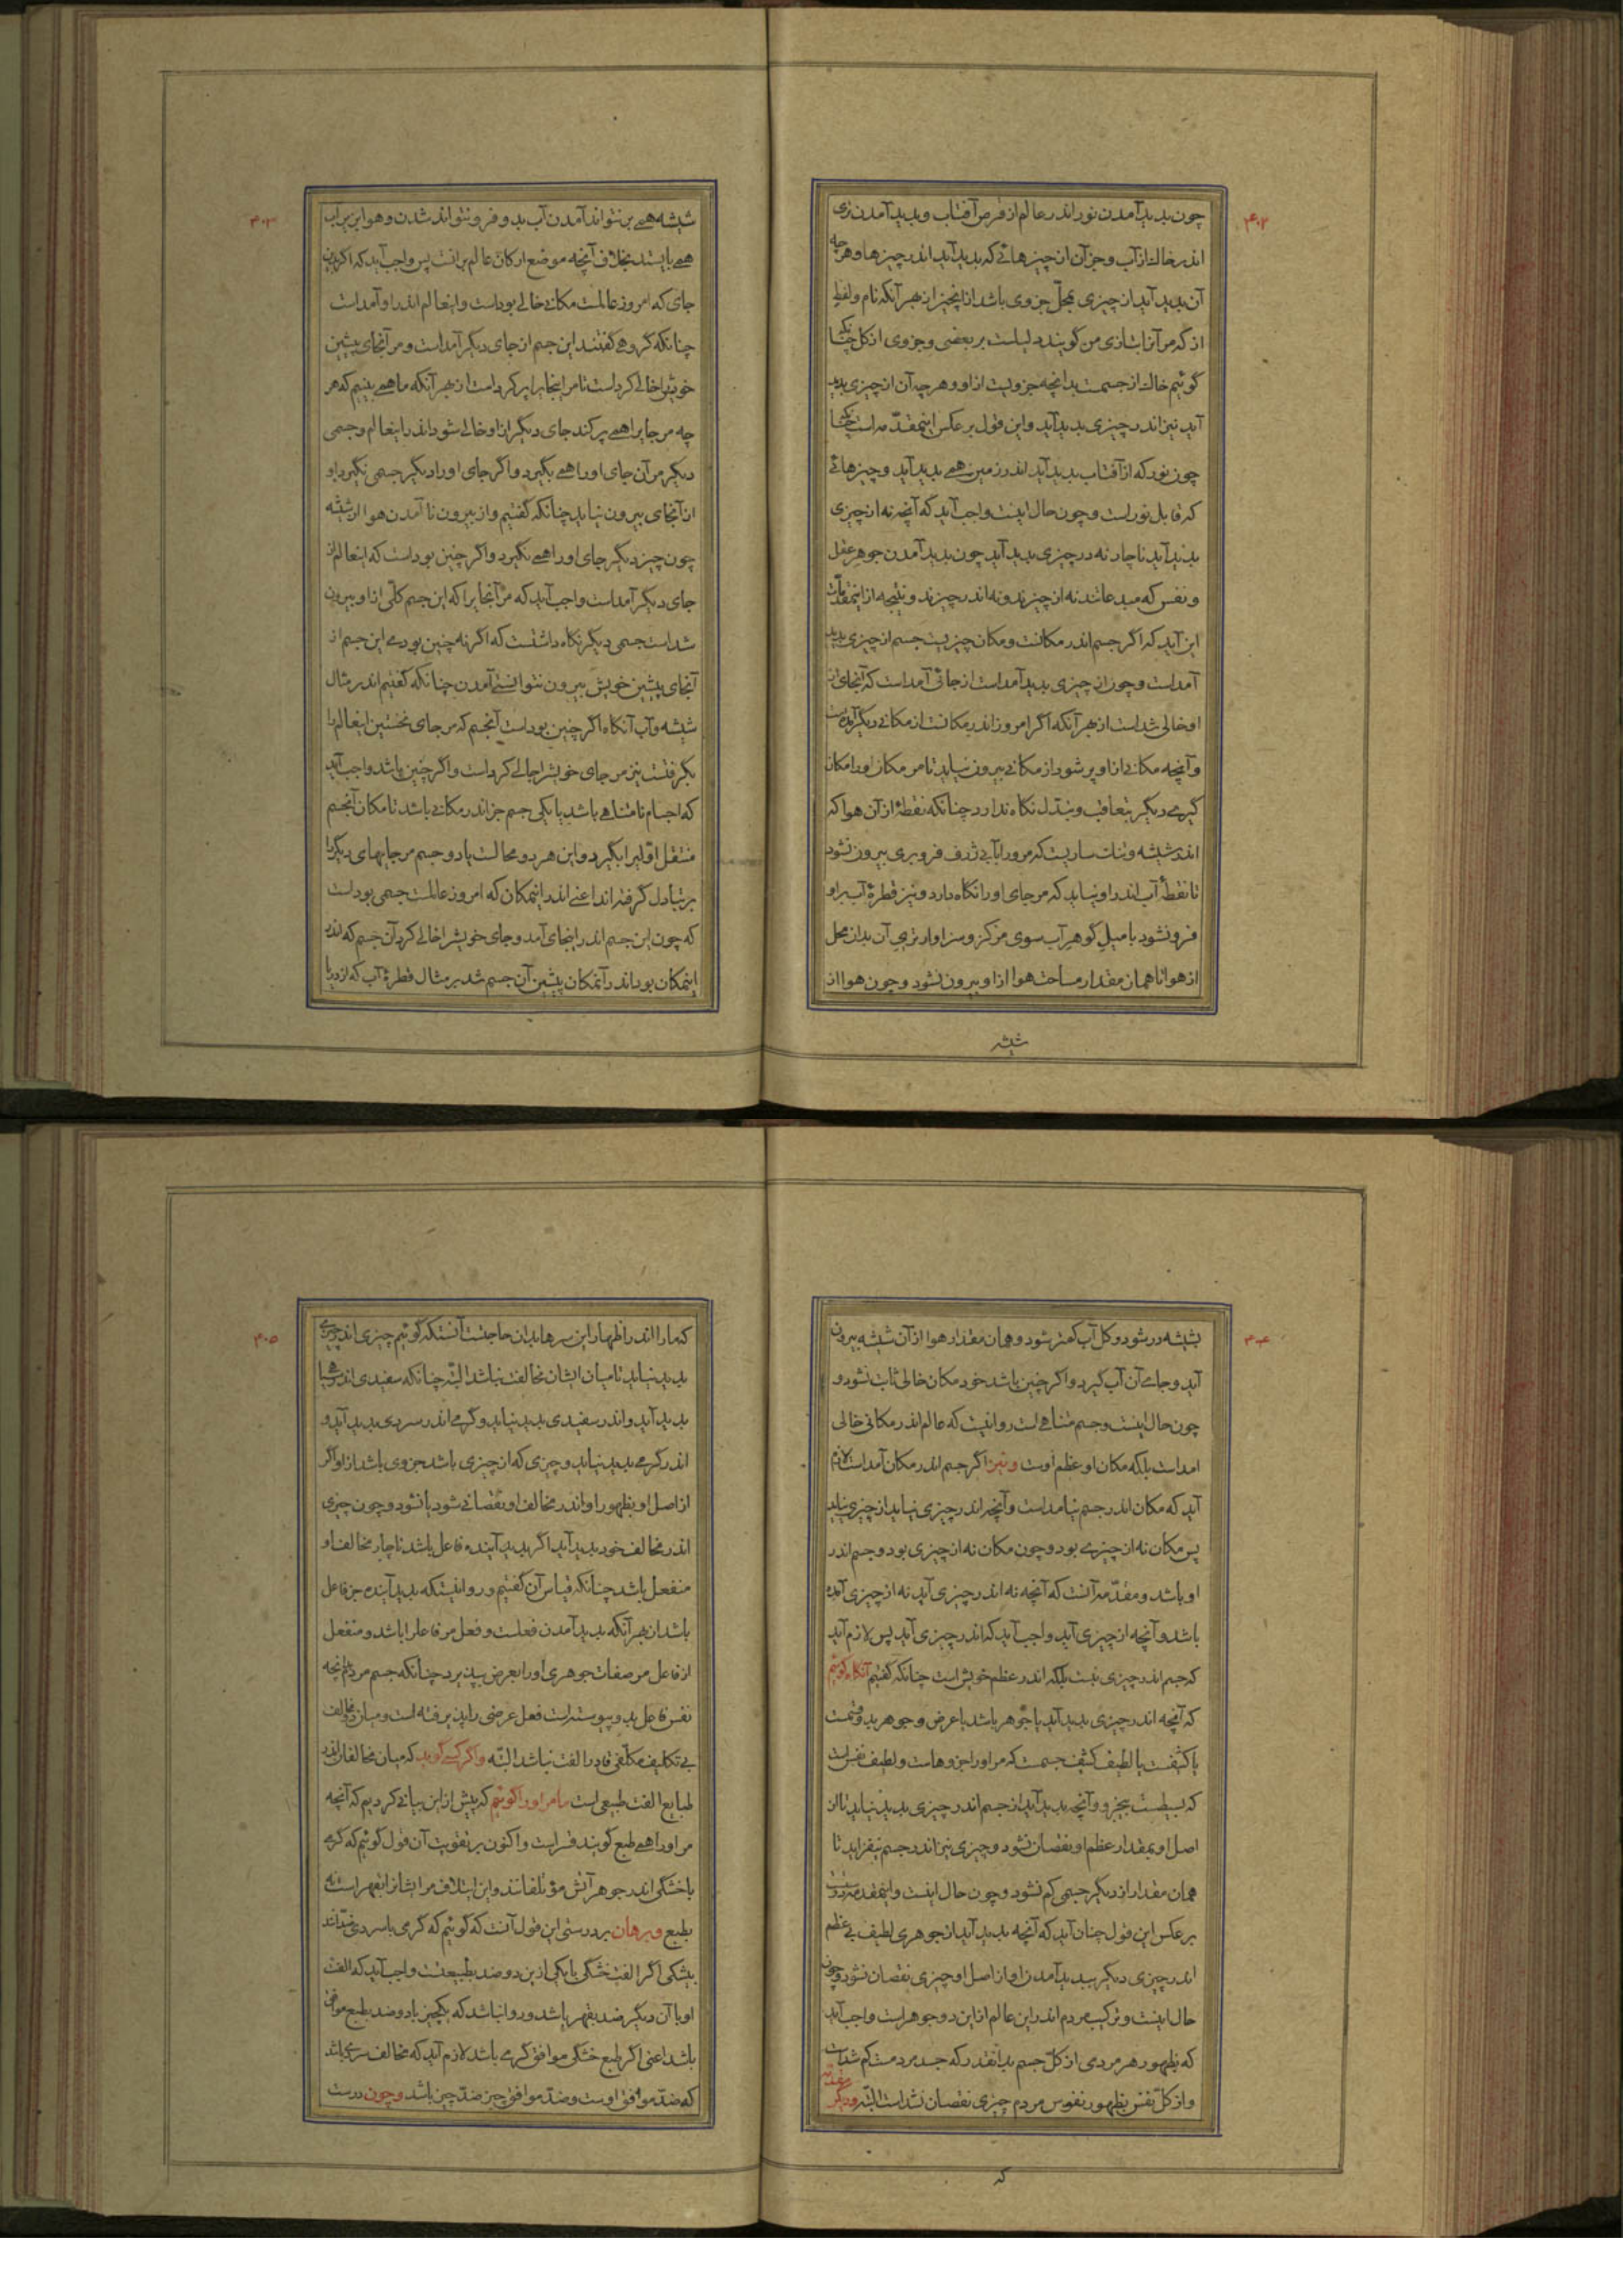 ۳۰۲
چون بدید آمدن نور اندر عالم از قرص آفتاب و بدید آمدن تری
اندر خاک از آب و جز آن از چیزهائی که بدید آید اندر چیزها و هر چه
آن بدید آید از چیزی بمحلّ جزوی باشد از انچیز از بهر آنکه نام و لفظ
از که مر آنرا بتازی من گویند دلیلست بر بعضی و جزوی از کل چنانکه
گوئیم خاک از جسمست بدانچه جزویست ازو و هر چه آن از چیزی بدید
آید نیز اندر چیزی بدید آید و این قول بر عکس اینمقدّمه است چنانکه
چون نور که از آفتاب بدید آید اندر زمین همے بدید آید و چیزهائے
که قابل نور است و چون حال اینست واجب آید که آنچه نه از چیزی
بدید آید ناچار نه در چیزی بدید آید چون بدید آمدن جوهر عقل
و نفس که مبدعانند نه از چیزند و نه اندر چیزند و نتیجه از اینمقدّمات
این آید که اگر جسم اندر مکانست و مکان چیزیست جسم از چیزی بدید
آمداست و چون از چیزی بدید آمداست از جائی آمداست که آنجای از
او خالی شداست از بهر آنکه اگر امروز اندر مکانست از مکانے دیگر آمده است
و آنچه مکانے ازاو پر شود از مکانے بیرون نیاید تا مر مکان اورا مکان
گیرے دیگر بتعاقب و بتدل نگاه ندارد چنانکه نقطهٔ از آن هوا که
اندر شیشه و تنک ساریست که مر ورا بآبے ژرف فرو بری بیرون نشود
تا نقطهٔ آب اندر او نیاید که مر جای اورا نگاه دارد و نیز قطرهٔ آب براو
فرو نشود با میل گوهر آب سوی مرکز و سزاوارتری آن بدان محل
از هوا تا همان مقدار مساحت هوا ازاو بیرون نشود و چون هوا از
شیشه
۳۰۳
شیشه همے بر نتواند آمدن آب بدو فرو نتواند شدن و هوا بر بر آب
همے بایستد بخلاف آنچه موضع ارکان عالم برانست پس واجب آید که اگر این
جای که امروز عالمست مکانے خالے بوداست و اینعالم اندر او آمداست
چنانکه گروهے گفتند این جسم از جای دیگر آمداست و مر آنجای پیشین
خویشرا خالے کرداست تا مر اینجایرا پر کرداست از بهر آنکه ما همے بینیم که هر
چه مر جایرا همے پر کند جای دیگر ازاو خالے شود اندر اینعالم و جسمی
دیگر مر آن جای اورا همے بگیرد و اگر جای اورا دیگر جسمی نگیرد او
از آنجای بیرون نیاید چنانکه گفتیم و از بیرون نا آمدن هوا از شیشه
چون چیز دیگر جای اورا همے نگیرد و اگر چنین بوداست که اینعالم از
جای دیگر آمداست واجب آید که مر آنجایرا که این جسم کلّی ازاو بیرون
شداست جسمی دیگر نگاه داشتست که اگر نه چنین بودے این جسم از
آنجای پیشین خویش بیرون نتوانستے آمدن چنانکه گفتیم اندر مثال
شیشه و آب آنکاه اگر چنین بوداست آنجسم که مر جای نخستین اینعالمرا
بگرفتست نیز مر جای خویشرا خالے کرداست و اگر چنین باشد واجب آید
که اجسام نامتناهے باشد یا یکی جسم جز اندر مکانے باشد تا مکان آنجسم
منتقل اوّلیرا بگیرد و این هر دو محالست یا دو جسم مر جایهای دیگر را
بر تبادل گرفته اند اعنے اندر اینمکان که امروز عالمست جسمی بوداست
که چون این جسم اندر اینجای آمد و جای خویشرا خالے کرد آن جسم که اندر
اینمکان بود اندر آنمکان پیشین آن جسم شد بر مثال قطرهٔ آب که از دریا
۳۰۴
بشیشه در شود و کل آب کمتر شود و همان مقدار هوا از آن شیشه بیرون
آید و جاے آن آب گیرد و اگر چنین باشد خود مکان خالی ثابت نشود و
چون حال اینست و جسم متناهے است روا نیست که عالم اندر مکانی خالی
امداست بلکه مکان او عظم اوست و نیز اگر جسم اندر مکان آمداست لازم
آید که مکان اندر جسم نیامداست و آنچه اندر چیزی نیاید از چیزی نیاید
پس مکان نه از چیزے بود و چون مکان نه از چیزی بود و جسم اندر
او باشد و مقدّمه آنست که آنچه نه اندر چیزی آید نه از چیزی آمده
باشد و آنچه از چیزی آید واجب آید که اندر چیزی آید پس لازم آید
که جسم اندر چیزی نیست بلکه اندر عظم خویش است چنانکه گفتیم آنکاه گوئیم
که آنچه اندر چیزی بدید آید یا جوهر باشد یا عرض و جوهر بدو قسمت
یا کثیفست یا لطیف کثیف جسمست که مر اورا جزوهاست و لطیف نفس است
که بسیطست بیجزو و آنچه بدید آید از جسم اندر چیزی بدید نیاید تا از
اصل او بمقدار عظم او نقصان نشود و چیزی نیز اندر جسم نیفزاید تا
همان مقدار از دیگر جسمی کم نشود و چون حال اینست و اینمقدمه درست
بر عکس این قول چنان آید که آنچه بدید آید از جوهری لطیف بے عظم
اندر چیزی دیگر ببدید آمدن او از اصل او چیزی نقصان نشود و چون
حال اینست و ترکیب مردم اندر این عالم از این دو جوهر است واجب آید
که بظهور هر مردمی از کلّ جسم بدانقدر که جسد مردمست کم شداست
و از کلّ نفس بظهور نفوس مردم چیزی نقصان نشداست البتّه و دیگر مقدّمه
که
۳۰۵
که ما را اندر اظهار این برهان بدان حاجتست آنستکه گوئیم چیزی اندر چیزی
بدید نیاید تا میان ایشان مخالفت نباشد البتّه چنانکه سفیدی اندر سیاهی
بدید آید و اندر سفیدی بدید نیاید و گرمے اندر سردی بدید آید و
اندر گرمے بدید نیاید و چیزی که از چیزی باشد جزوی باشد ازاو اگر
از اصل او بظهور او اندر مخالف او نقصانے شود یا نشود و چون چیزی
اندر مخالف خود بدید آید اگر بدید آینده فاعل باشد ناچار مخالف او
منفعل باشد چنانکه قیاس آن گفتیم و روا نیستکه بدید آینده جز فاعل
باشد از بهر آنکه بدید آمدن فعلست و فعل مر فاعلرا باشد و منفعل
از فاعل مر صفات جوهری اورا بعرض بپذیرد چنانکه جسم مردم آنچه
نفس فاعل بدو پیوسته است فعل عرضی را پذیرفته است و میان دو مخالف
بے تکلیف مکلّفی قادر الفت نباشد البتّه و اگر کسے گوید که میان مخالفان اندر
طبایع الفت طبیعی است ما مر اورا گوئیم که پیش از این بیانے کردیم که آنچه
مر اورا همے طبع گویند قسر است و اکنون بر تقویت آن قول گوئیم که گرمے
با خشکی اندر جوهر آتش مؤتلفانند و این ایتلاف مر ایشانرا بقهر است نه
بطبع و برهان بر درستی این قول آنست که گوئیم که گرمی با سردی ضدّانند
بیشکی اگر الفت خشکی با یکی ازین دو ضد بطبیعتست واجب آید که الفت
او با آن دیگر ضد بقهر باشد و روا نباشد که یکچیز با دو ضد بطبع موافق
باشد اعنی اگر طبع خشکی موافق گرمے باشد لازم آید که مخالف سردی باشد
که ضدّ موافق اوست و ضدّ موافق چیز ضدّ چیز باشد و چون درست